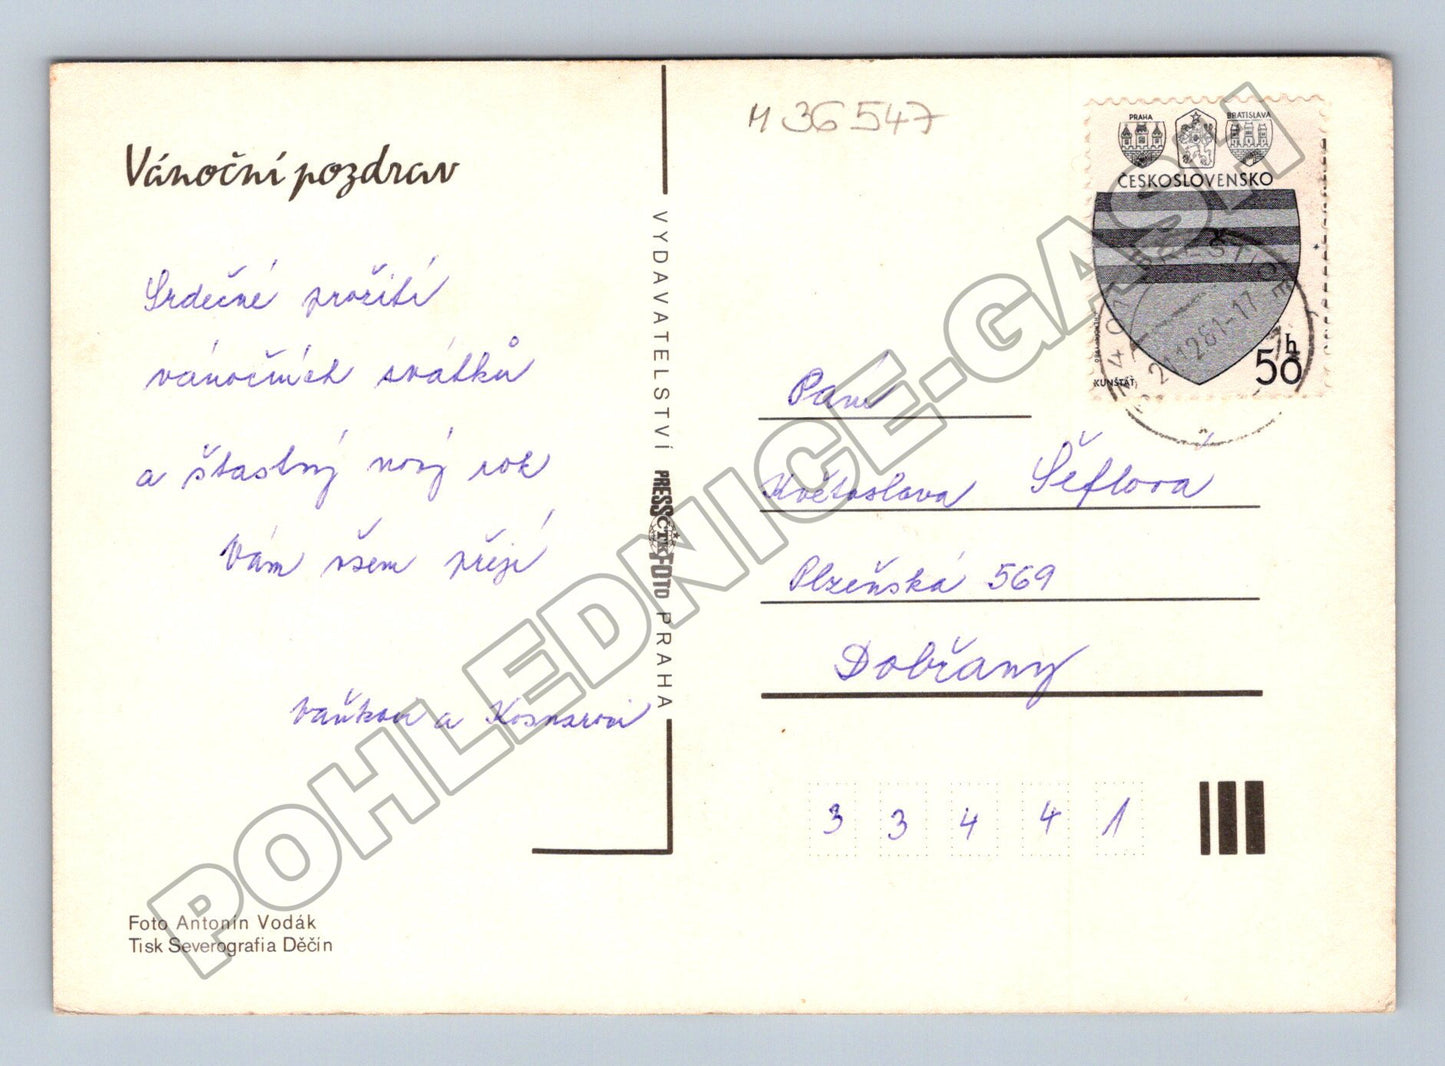 Vánoční pozdrav
Srdečné prožití
vánočních svátků
a šťastný nový rok
Vám všem přejí
Vaňkovi a
M 36547
PRAHA
BRATISLAVA
ČESKOSLOVENSKO
KUNŠTÁT
50 h
334 01 PŘEŠTICE
21.12.81-17
VYDAVATELSTVÍ PRESSFOTO PRAHA
ČTK
Paní
Květoslava Šéflová
Plzeňská 569
Dobřany
3 3 4 4 1
Foto Antonín Vodák
Tisk Severografia Děčín
POHLEDNICE-GASH